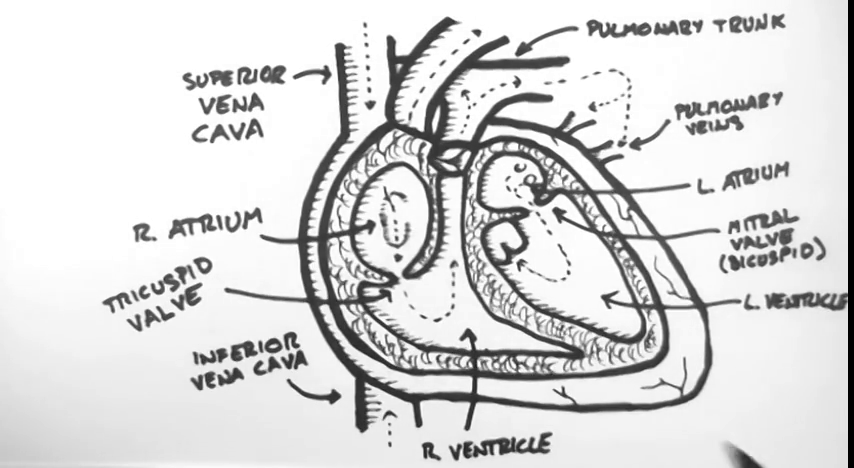 PULMONARY TRUNK
SUPERIOR
VENA
CAVA
PULMONARY
VEINS
L. ATRIUM
R. ATRIUM
MITRAL
VALVE
(BICUSPID)
TRICUSPID
VALVE
L. VENTRICLE
INFERIOR
VENA CAVA
R. VENTRICLE